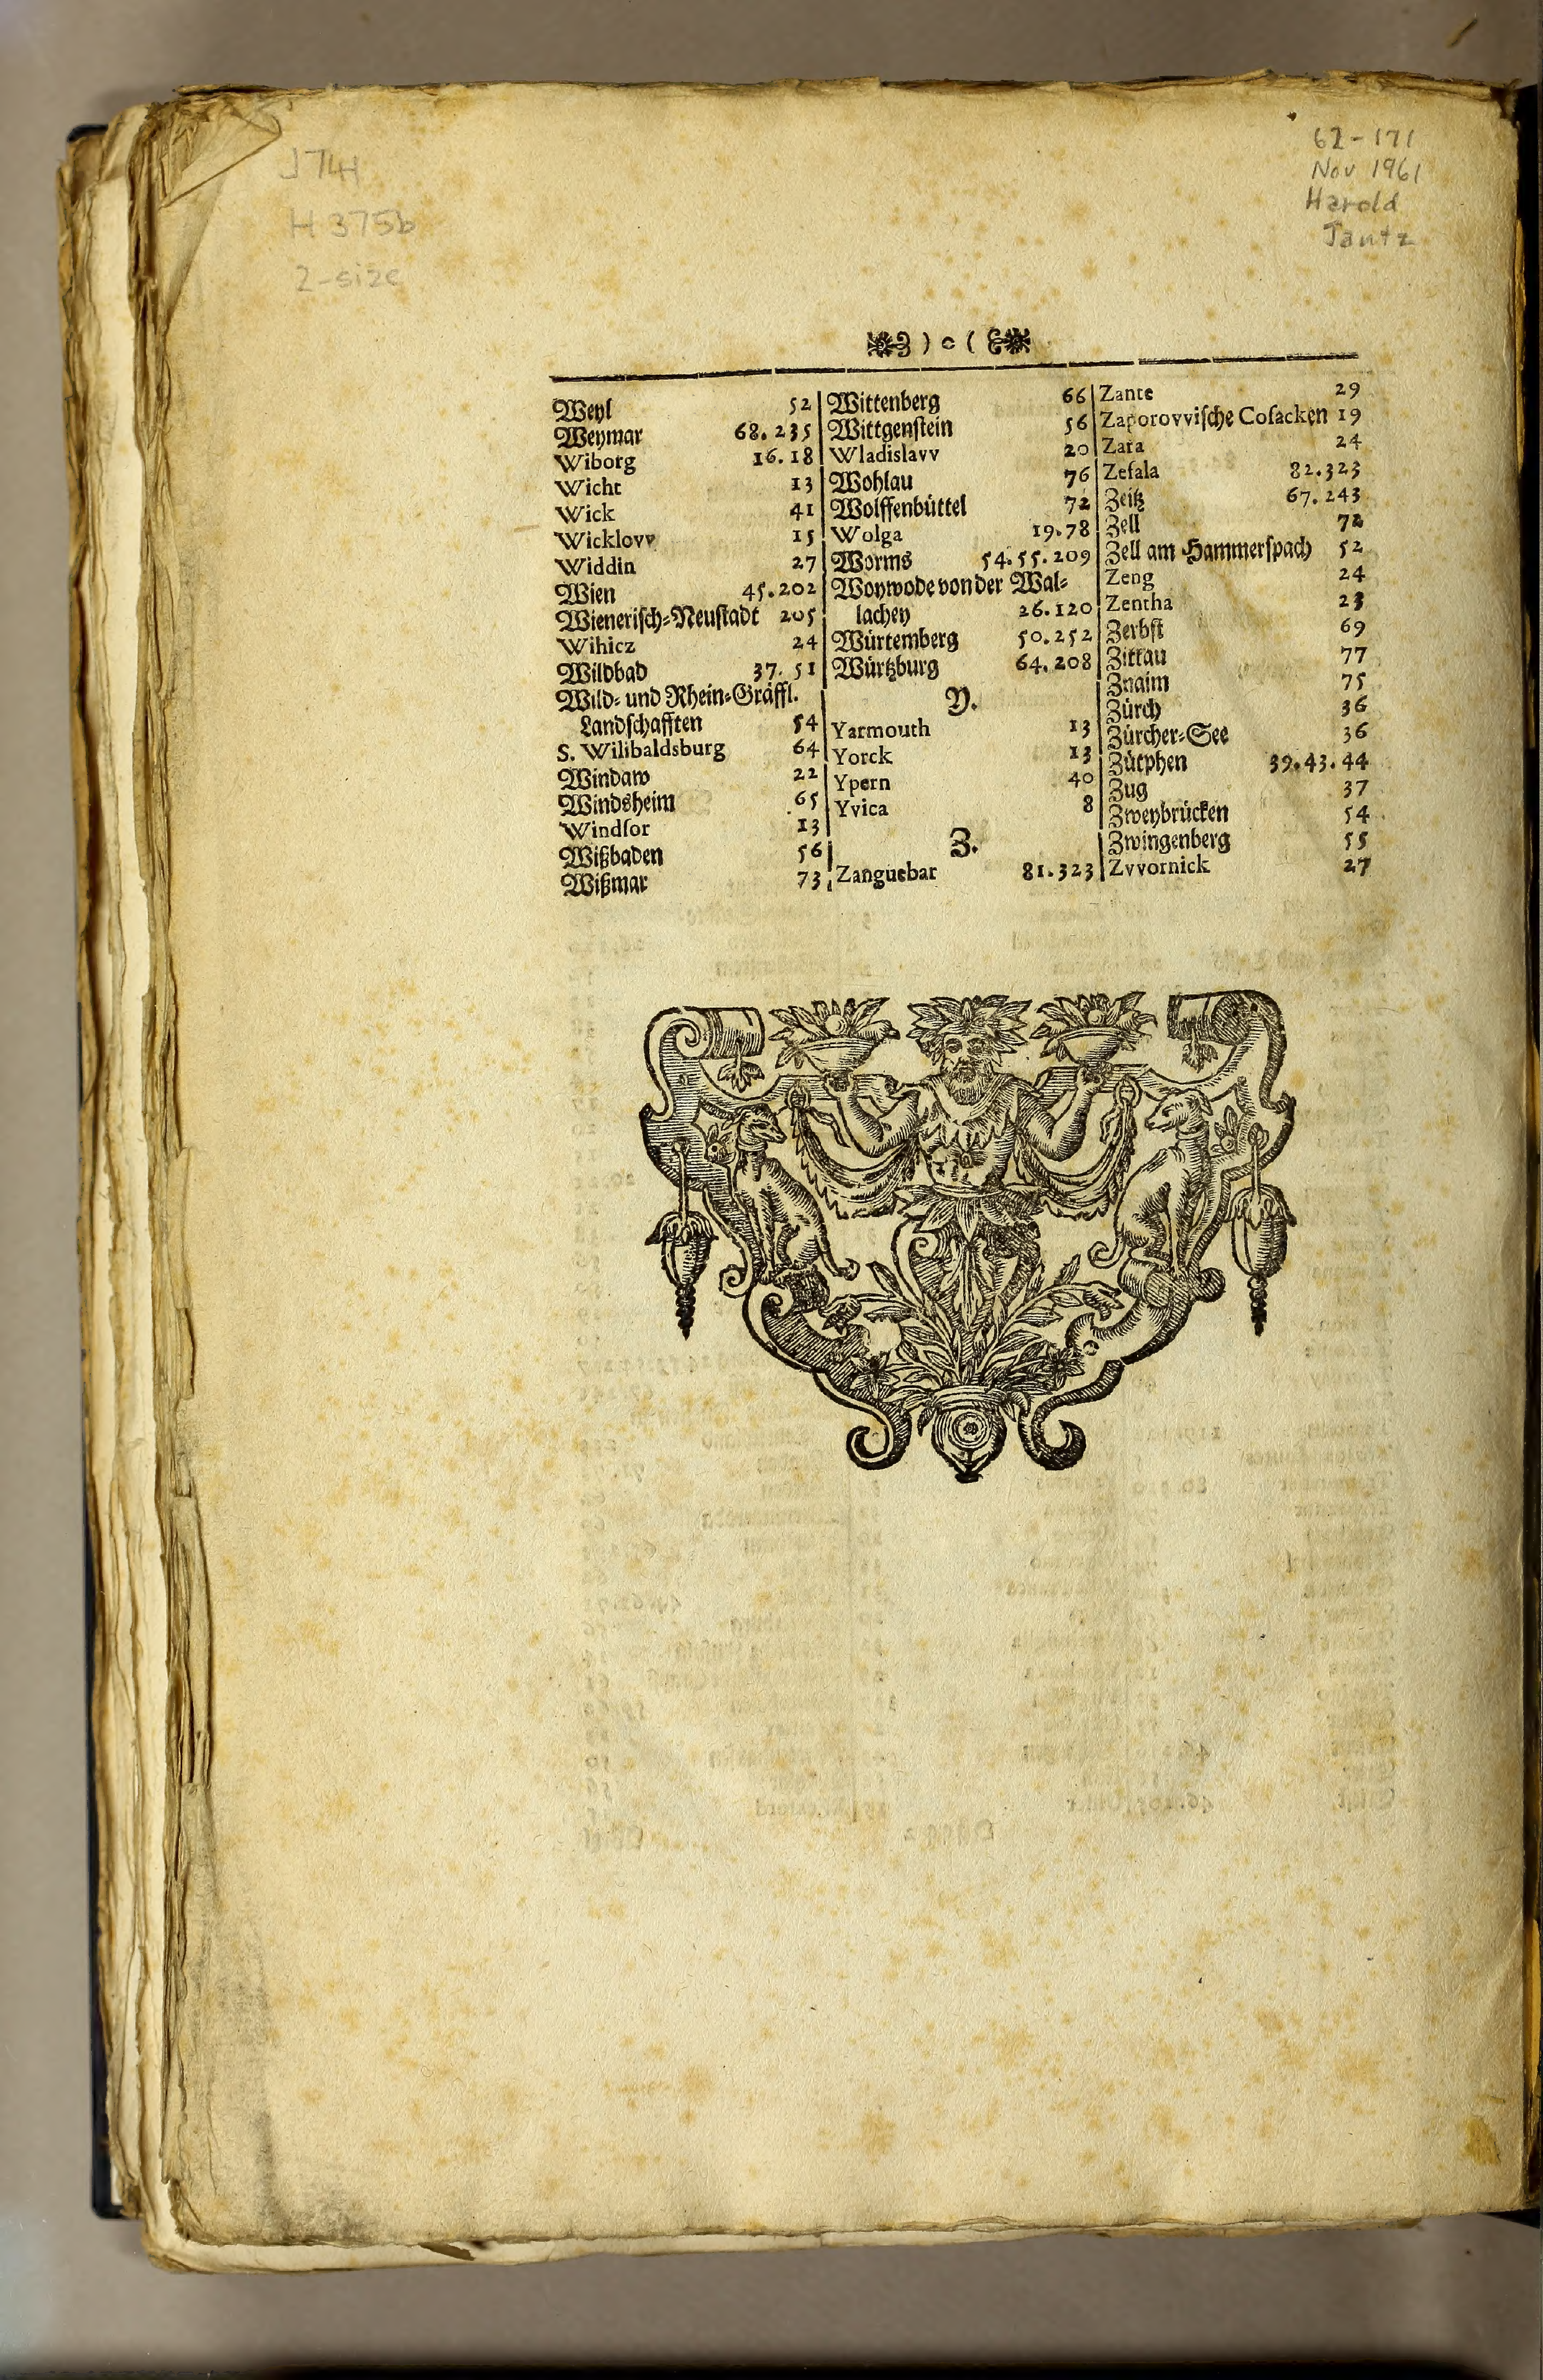 J741
H375b
2-size
62-171
Nov 1961
Harold
Jantz
) o (
Weyl 52
Weymar 68. 235
Wiborg 16. 18
Wicht 13
Wick 41
Wicklovv 15
Widdin 27
Wien 45. 202
Wienerisch-Neustadt 205
Wihicz 24
Wildbad 37. 51
Wild- und Rhein-Gräffl.
Landschafften 54
S. Wilibaldsburg 64
Windaw 22
Windsheim 65
Windsor 13
Wißbaden 56
Wißmar 73
Wittenberg 66
Wittgenstein 56
Wladislavv 20
Wohlau 76
Wolffenbüttel 72
Wolga 19. 78
Worms 54. 55. 209
Woywode von der Wal-
lachey 26. 120
Würtemberg 50. 252
Würtzburg 64. 208
Y.
Yarmouth 13
Yorck 13
Ypern 40
Yvica 8
Z.
Zanguebar 81. 323
Zante 29
Zaporovvische Cosacken 19
Zara 24
Zefala 82. 323
Zeitz 67. 243
Zell 72
Zell am Hammerspach 52
Zeng 24
Zentha 23
Zerbst 69
Zittau 77
Znaim 75
Zürch 36
Zürcher-See 36
Zütphen 39. 43. 44
Zug 37
Zweybrücken 54
Zwingenberg 55
Zvvornick 27